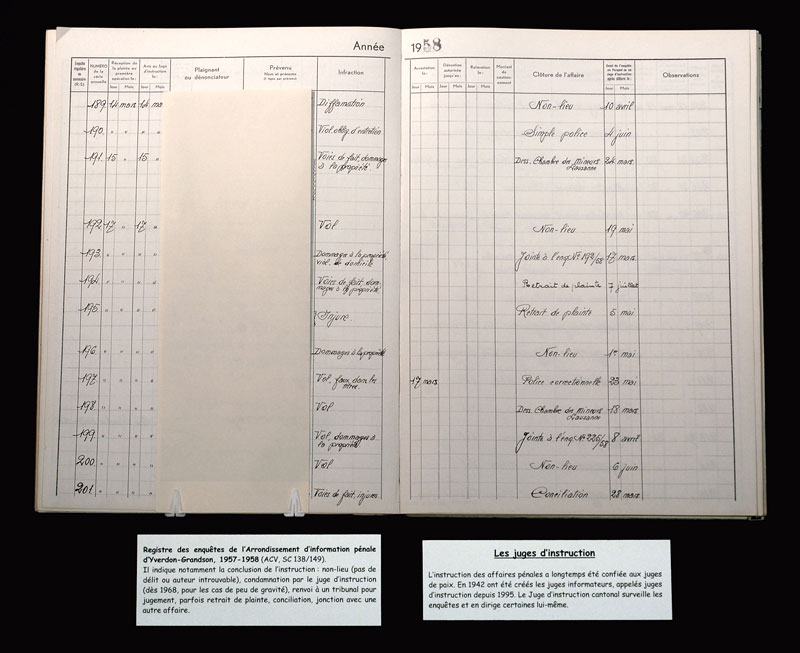 Année 1958
NUMÉRO de la série annuelle
Réception de la plainte ou première opération le:
Acte au juge d'instruction le:
Plaignant ou dénonciateur
Prévenu
Nom et prénoms
Infraction
Arrestation le:
Détention autorisée jusqu'au:
Relaxation le:
Clôture de l'affaire
Observations
Jour Mois Jour Mois
Jour Mois Jour Mois Jour Mois Jour Mois
189 14 mars 14 Diffamation Non-lieu 10 avril
190 " " Viol. oblig. d'entretien Simple police 4 juin
191 15 " 15 " Voies de fait, dommages
à la propriété Dess. Chambre des Mineurs 24 mars
Lausanne
192 17 " 17 " Vol Non-lieu 19 mai
193 " " " " Dommages à la propriété
viol. de domicile Jointe à l'enq. Nº 192/58 17 mars
194 " " " " Voies de fait, dom-
mages à la propriété Retrait de plainte 7 juillet
195 " " " " Injure Retrait de plainte 6 mai
196 " " " " Dommages à la propriété Non-lieu 1er mai
197 " " " " Vol, faux dans les
titres 17 mars Police correctionnelle 23 mai
198 " " " " Vol Dess. Chambre des Mineurs 18 mars
Lausanne
199 " " " " Vol, dommages à
la propriété Jointe à l'enq. Nº 226/58 8 avril
200 " " " " Vol Non-lieu 6 juin
201 " " " " Voies de fait, injures Conciliation 28 mars
Registre des enquêtes de l'Arrondissement d'information pénale
d'Yverdon-Grandson, 1957-1958 (ACV, SC 138/149).
Il indique notamment la conclusion de l'instruction : non-lieu (pas de
délit ou auteur introuvable), condamnation par le juge d'instruction
(dès 1968, pour les cas de peu de gravité), renvoi à un tribunal pour
jugement, parfois retrait de plainte, conciliation, jonction avec une
autre affaire.
Les juges d'instruction
L'instruction des affaires pénales a longtemps été confiée aux juges
de paix. En 1942 ont été créés les juges informateurs, appelés juges
d'instruction depuis 1995. Le Juge d'instruction cantonal surveille les
enquêtes et en dirige certaines lui-même.